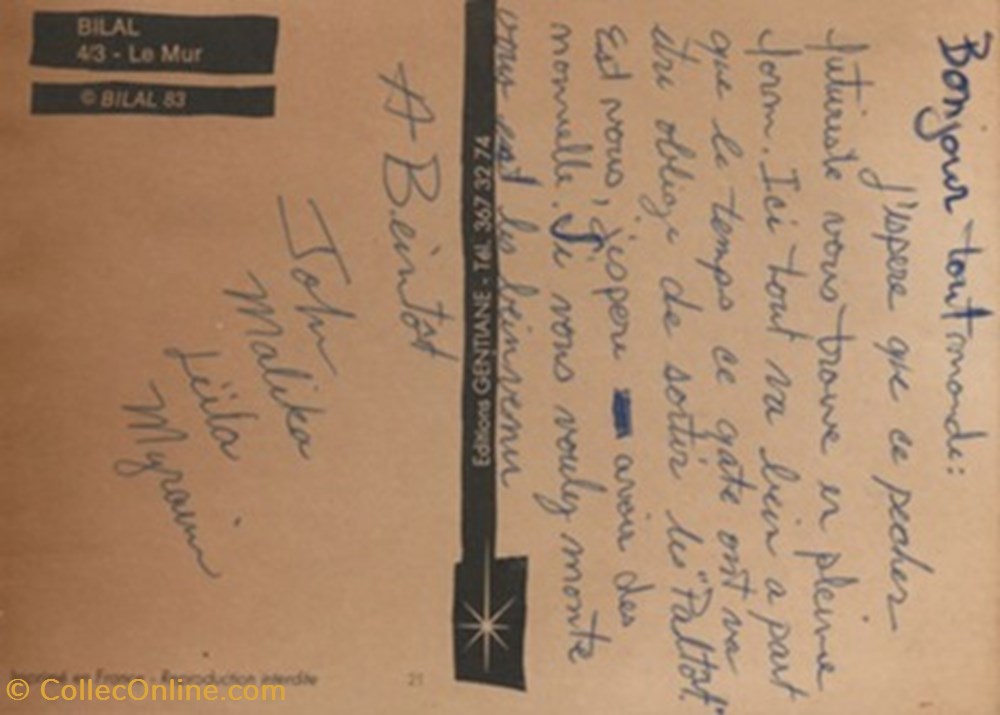 BILAL
4/3 - Le Mur
© BILAL 83
Bonjour tout monde:
J'espere que ce pecher
futuriste vous trouve en pleine
form. Ici tout va bien a part
que le temps ce gâte ont va
étre oblige de sortir les "Paltot"
Est vous, j'espere avoir des
nonnelle. Si vous vouly monte
vous est les beinvenu
A Beintôt
John
Malika
Leila
Myriam
Editions GENTIANE - Tél. 367 32 74
21
Imprimé en France - Reproduction interdite
© CollecOnline.com